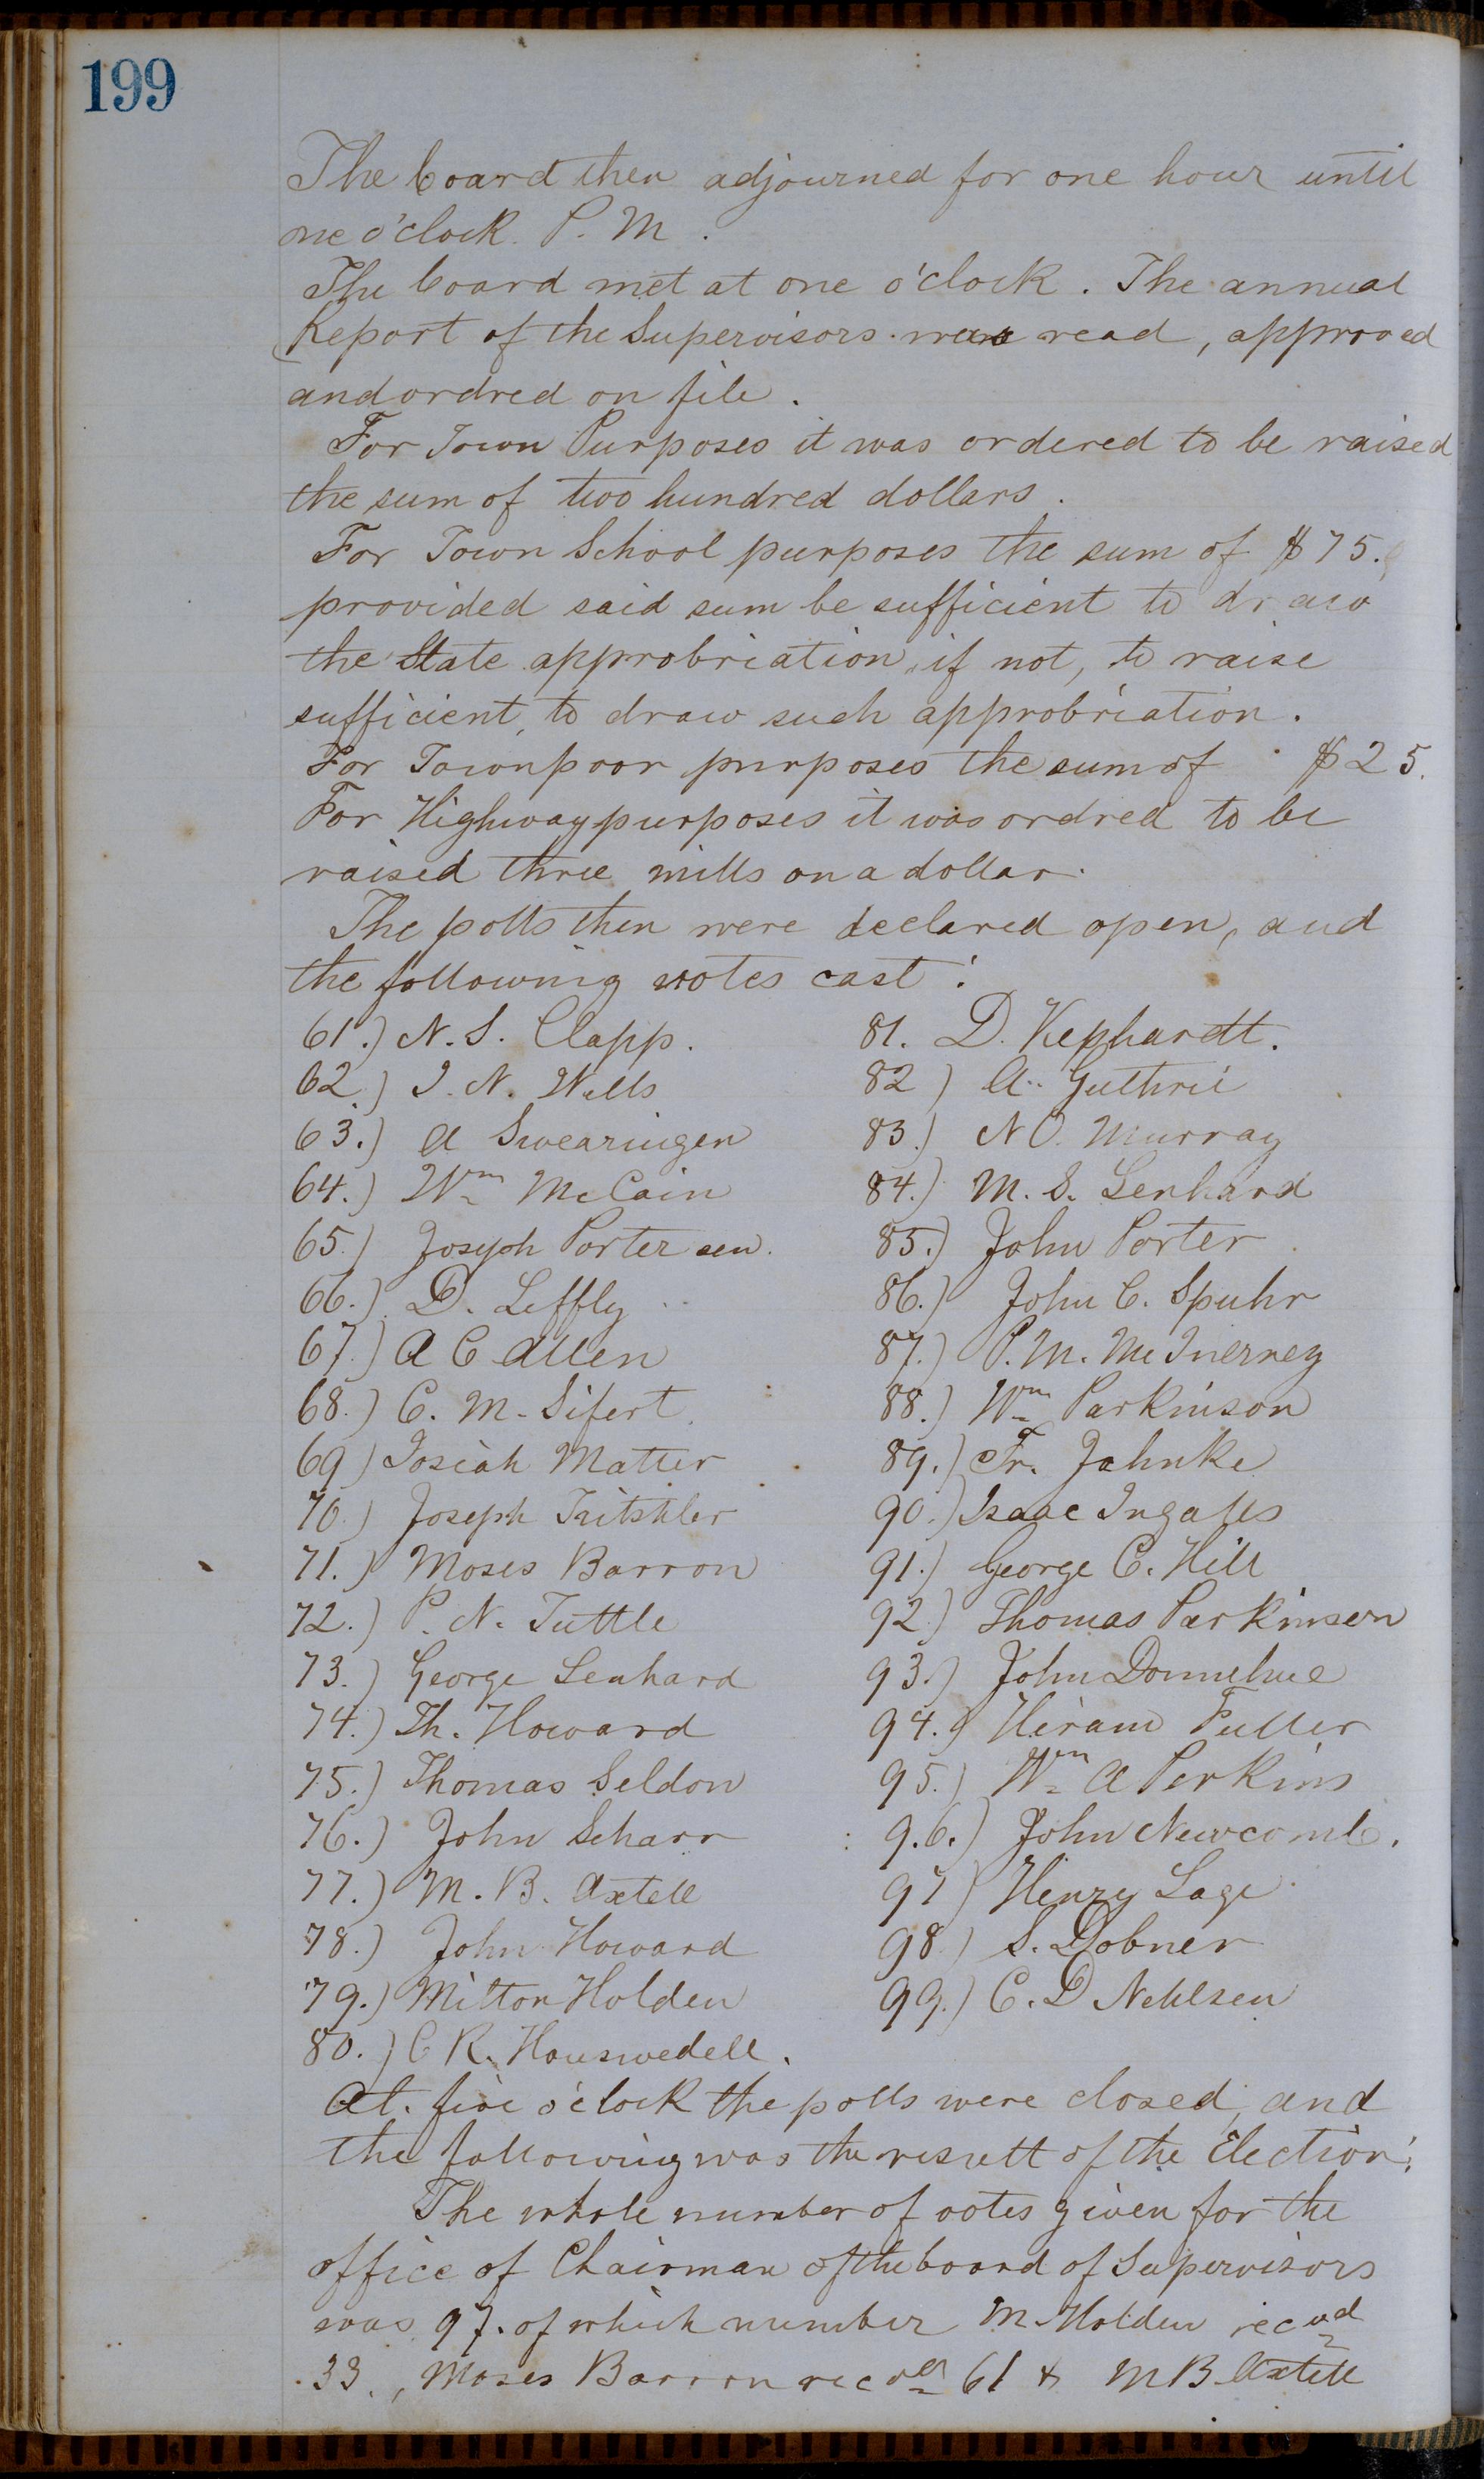 199
The board then adjourned for one hour until
one o'clock. P. M.
The board met at one o'clock. The annual
Report of the Supervisors was read, approved
and ordred on file.
For Town Purposes it was ordered to be raised
the sum of two hundred dollars.
For Town School purposes the sum of $75.
provided said sum be sufficient to draw
the State approbriation, if not, to raise
sufficient, to draw such approbriation.
For Town poor purposes the sum of $25.
For Highway purposes it was ordred to be
raised three mills on a dollar.
The polls then were declared open, and
the following votes cast:
61.) N. S. Clapp.
62.) I. N. Wells
63.) A Swearingen
64.) Wm McCain
65.) Joseph Porter sen.
66.) D. Leffly
67.) A C Allen
68.) C. M. Sifert
69) Josiah Matter
70.) Joseph Tritshler
71.) Moses Barron
72.) P. N. Tuttle
73.) George Lenhard
74.) Th. Howard
75.) Thomas Seldon
76.) John Scharr
77.) M. B. Axtell
78.) John Howard
79.) Milton Holden
80.) C R. Houswedell.
81. D. Kephardt.
82) A. Guthrie
83.) N O. Murray
84.) M. S. Lenhard
85.) John Porter
86.) John C. Spuhr
87.) P. M. McInerney
88.) Wm Parkinson
89.) Fr. Jahnke
90.) Isaac Ingalls
91.) George C. Hill
92.) Thomas Parkinson
93.) John Donnehue
94.) Hiram Fuller
95.) Wm A Perkins
96.) John Newcomb.
97) Henry Lage
98.) S. Dobner
99.) C. D Nehlsen
At five o'clock the polls were closed, and
the following was the result of the Election:
The whole number of votes given for the
office of Chairman of the board of Supervisors
was 97. of which number M. Holden recvd
33., Moses Barron recvd 61 & M B Axtell